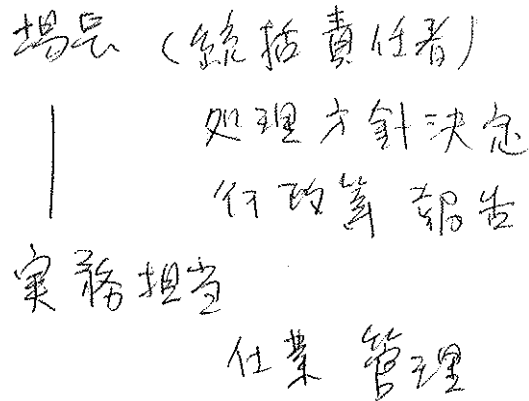 場長(統括責任者)
処理方針決定
行政等 報告
実務担当
仕業 管理